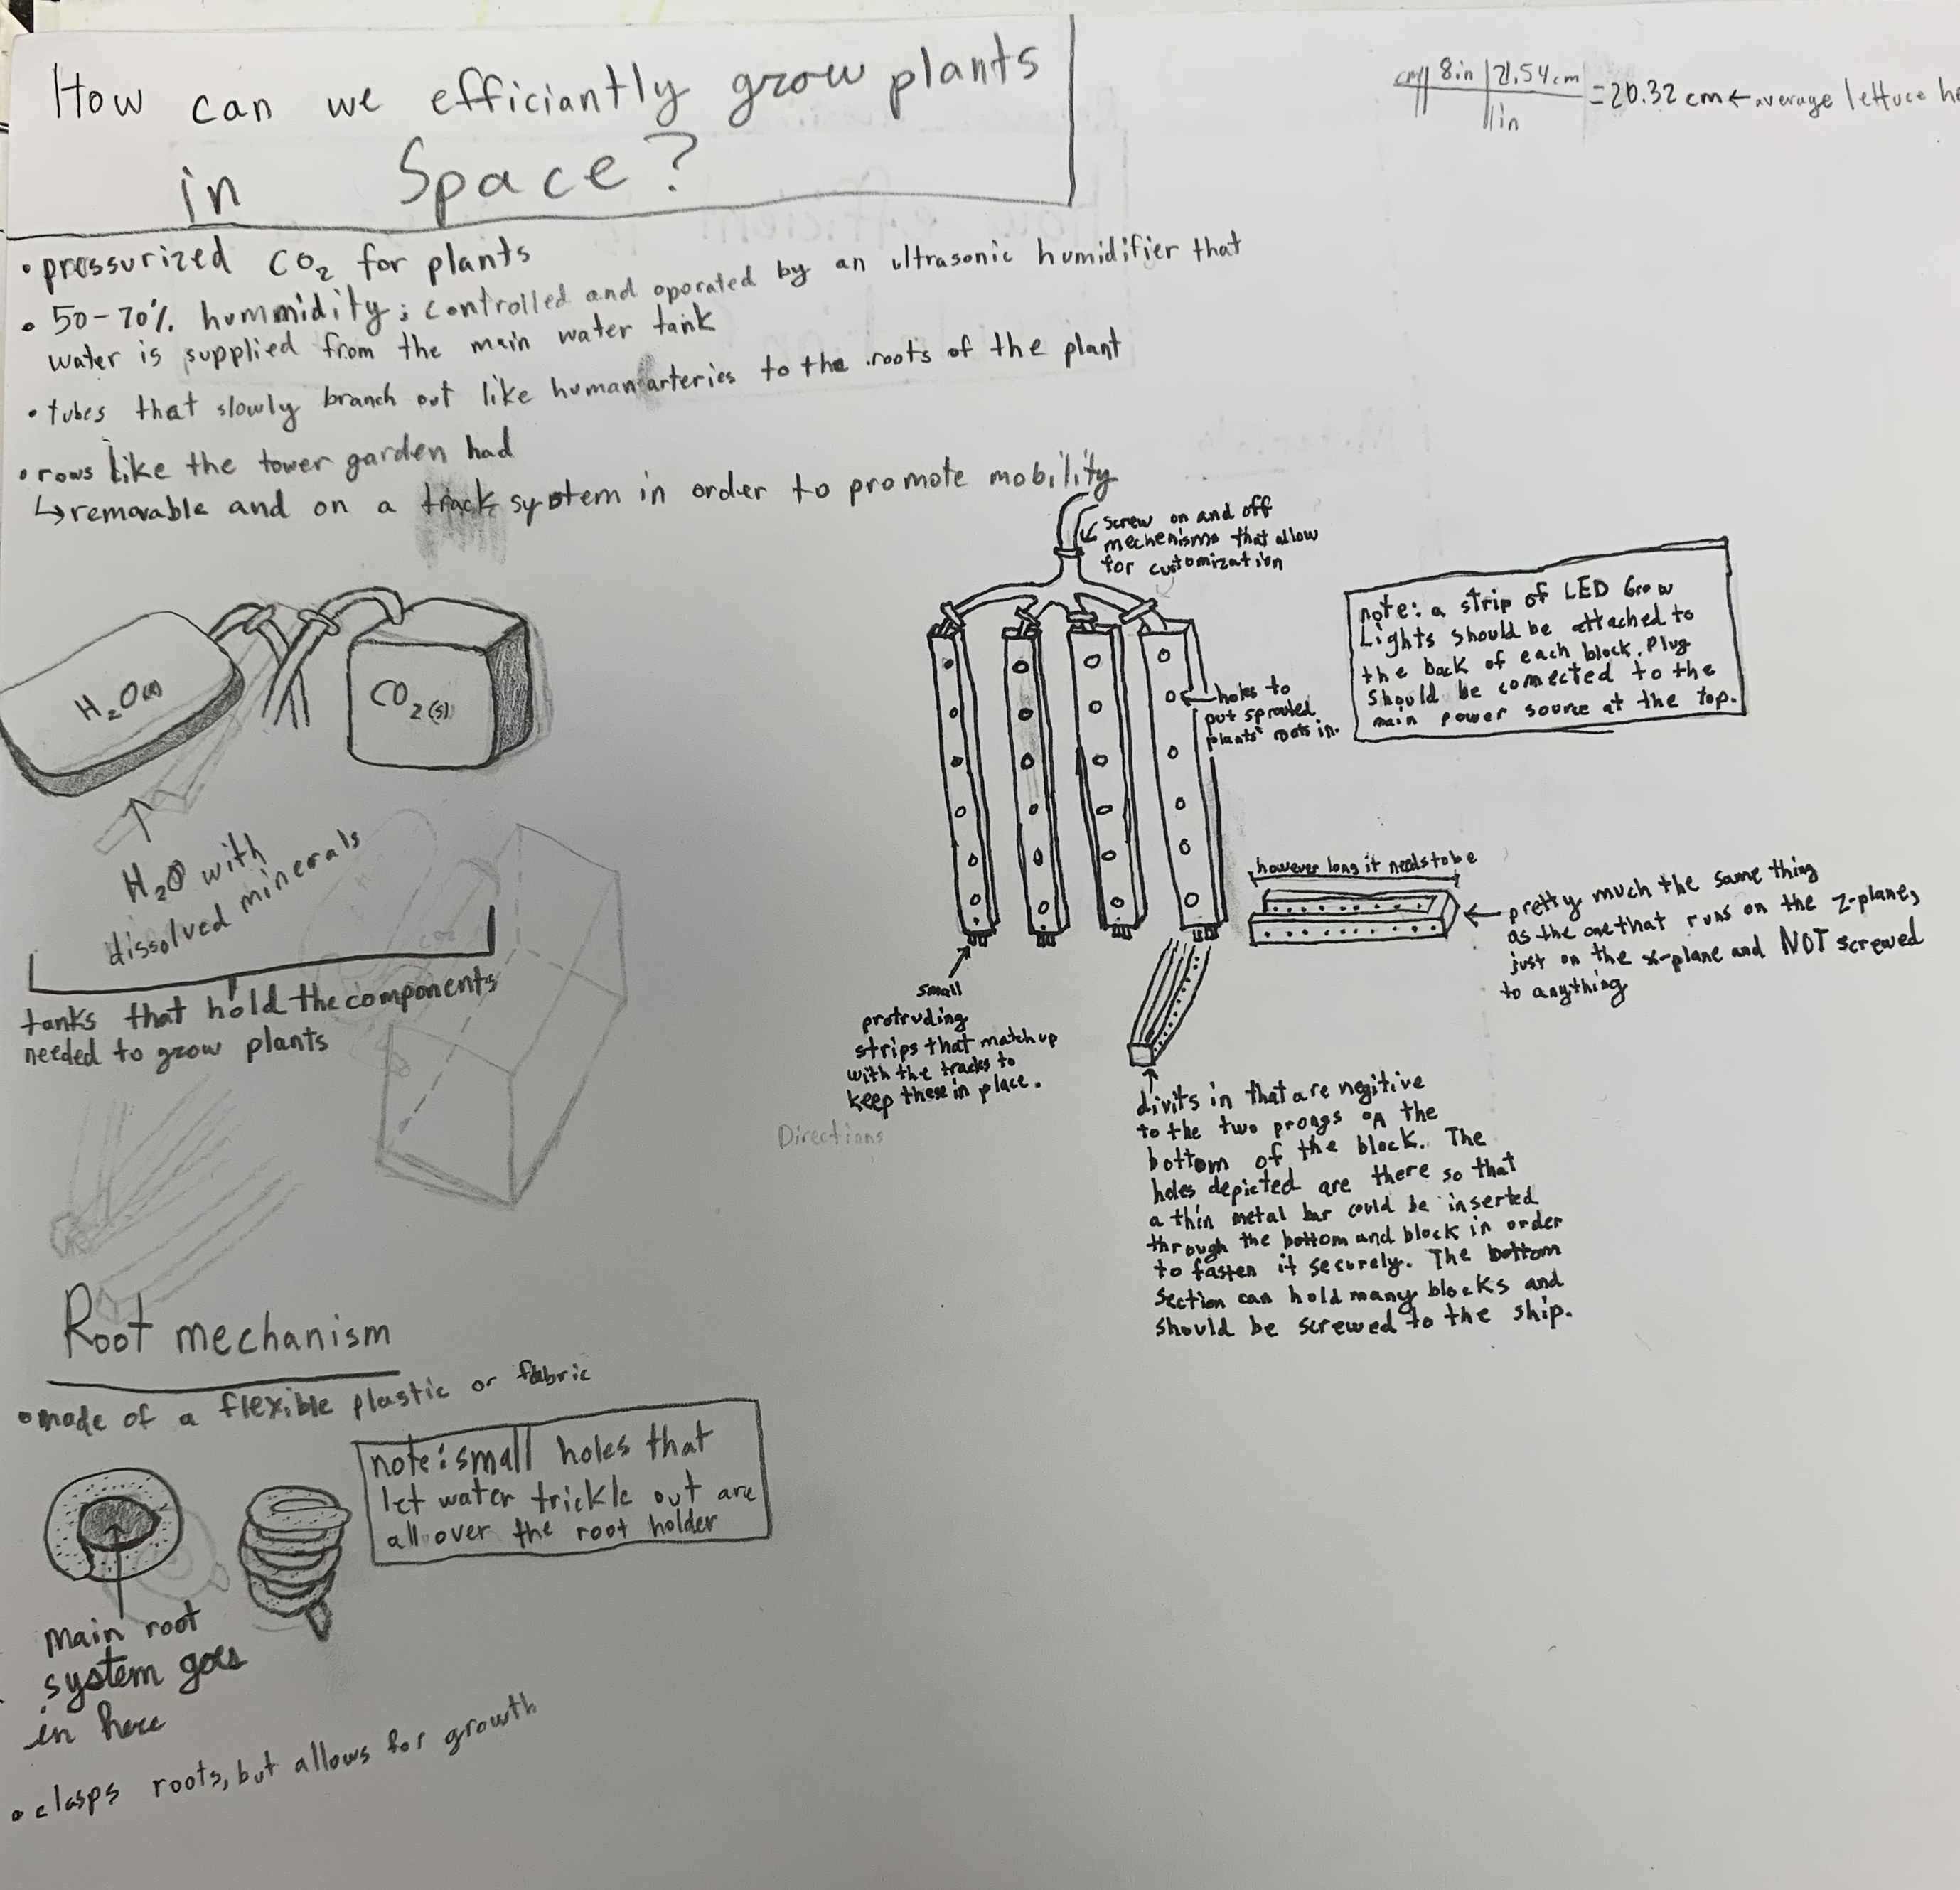 How can we efficiantly grow plants
in Space?
cm 8in 2.54cm
1in
=20.32 cm ← average lettuce he
• pressurized CO₂ for plants
• 50-70% hummidity; controlled and oporated by an ultrasonic humidifier that
water is supplied from the main water tank
• tubes that slowly branch out like human arteries to the roots of the plant
• rows like the tower garden had
↳ removable and on a track system in order to promote mobility
screw on and off
mechenisms that allow
for customization
note: a strip of LED Grow
Lights should be attached to
the back of each block. Plug
should be connected to the
main power source at the top.
holes to
put sprouted
plants' roots in.
H₂O
CO₂(s)
H₂O with
dissolved minerals
tanks that hold the components
needed to grow plants
however long it needs to be
pretty much the same thing
as the one that runs on the z-plane,
just on the x-plane and NOT screwed
to anything
small
protruding
strips that match up
with the tracks to
keep these in place.
Directions
divits in that are negitive
to the two prongs on the
bottom of the block. The
holes depicted are there so that
a thin metal bar could be inserted
through the bottom and block in order
to fasten it securely. The bottom
section can hold many blocks and
should be screwed to the ship.
Root mechanism
• made of a flexible plastic or fabric
note: small holes that
let water trickle out are
all over the root holder
Main root
system goes
in here
• clasps roots, but allows for growth